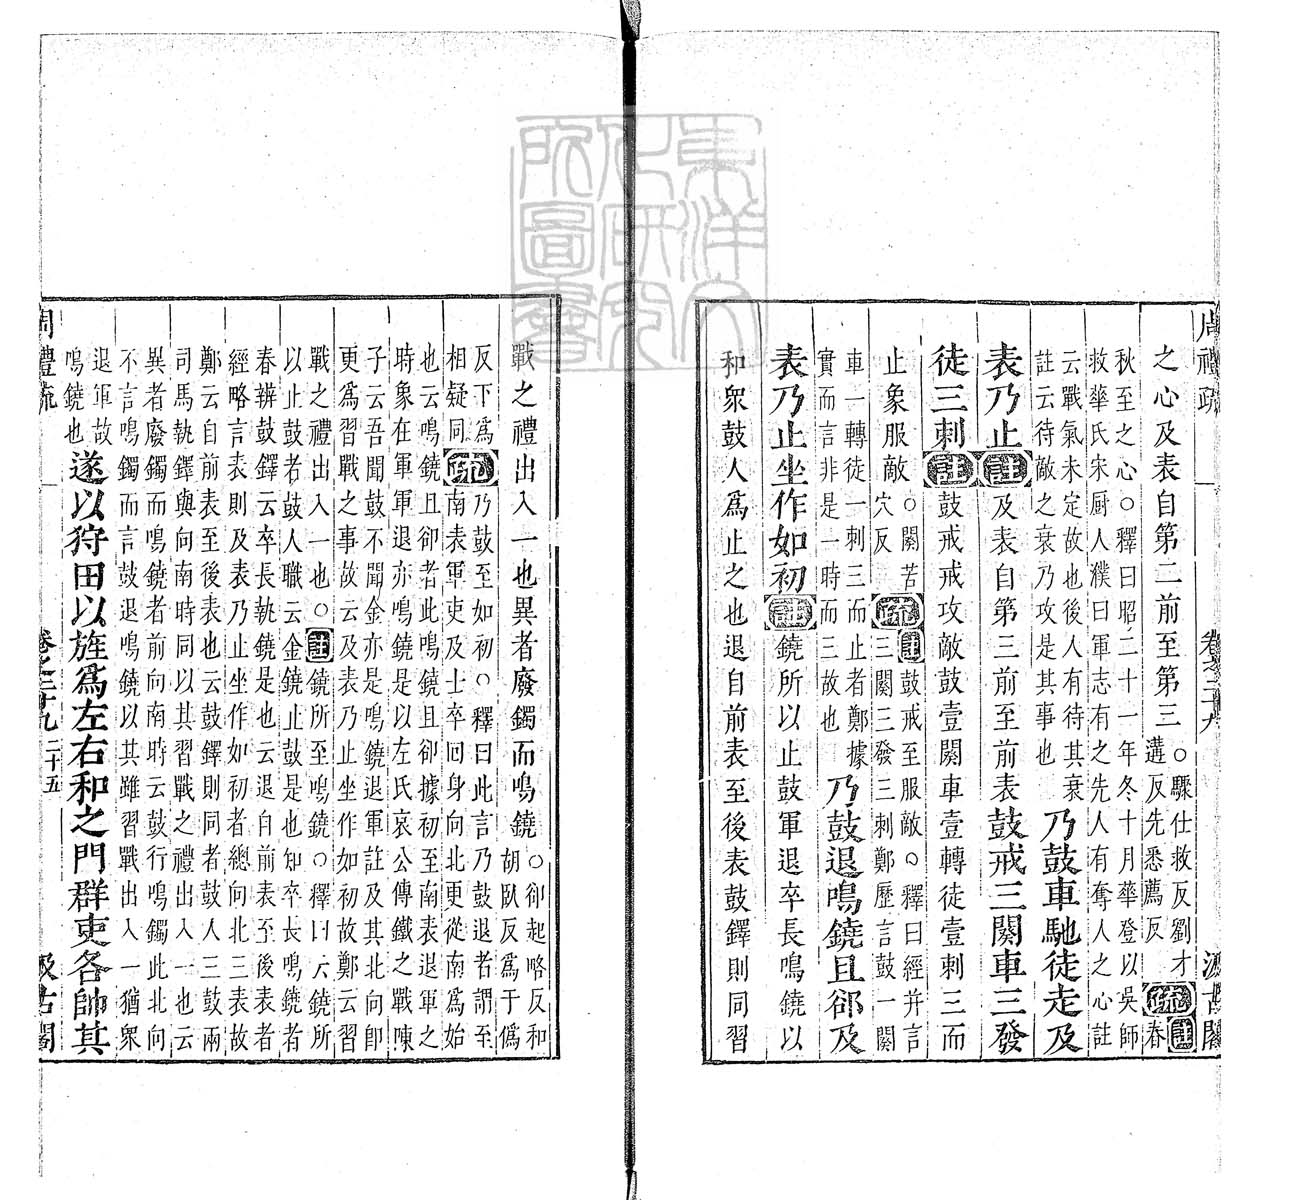 周禮疏 卷之二十九 汲古閣
之心及表自第二前至第三○驟仕救反劉才
遘反先悉薦反疏註春
秋至之心○釋曰昭二十一年冬十月華登以吳師
救華氏宋厨人濮曰軍志有之先人有奪人之心註
云戰氣未定故也後人有待其衰
註云待敵之衰乃攻是其事也乃鼓車馳徒走及
表乃止註及表自第三前至前表鼓戒三闋車三發
徒三刺註鼓戒戒攻敵鼓壹闋車壹轉徒壹刺三而
止象服敵○闋苦穴反疏註鼓戒至服敵○釋曰經幷言
三闋三發三刺鄭歷言鼓一闋
車一轉徒一刺三而止者鄭據
實而言非是一時而三故也乃鼓退鳴鐃且郤及
表乃止坐作如初註鐃所以止鼓軍退卒長鳴鐃以
和眾鼓人爲止之也退自前表至後表鼓鐸則同習
戰之禮出入一也異者廢鐲而鳴鐃○卻起略反和
胡臥反爲于僞
反下爲相疑同疏乃鼓至如初○釋曰此言乃鼓退者謂至
南表軍吏及士卒囘身向北更從南爲始
也云鳴鐃且卻者此鳴鐃且卻據初至南表退軍之
時象在軍軍退亦鳴鐃是以左氏哀公傳鐵之戰陳
子云吾聞鼓不聞金亦是鳴鐃退軍註及其北向卽
更爲習戰之事故云及表乃止坐作如初故鄭云習
戰之禮出入一也○註鐃所至鳴鐃○釋曰云鐃所
以止鼓者鼓人職云金鐃止鼓是也知卒長鳴鐃者
春辨鼓鐸云卒長執鐃是也云退自前表至後表者
經略言表則及表乃止坐作如初者總向北三表故
鄭云自前表至後表也云鼓鐸則同者鼓人三鼓兩
司馬執鐸與向南時同以其習戰之禮出入一也云
異者廢鐲而鳴鐃者前向南時云鼓行鳴鐲此北向
不言鳴鐲而言鼓退鳴鐃以其雖習戰出入一猶眾
退軍故
鳴鐃也遂以狩田以旌爲左右和之門群吏各帥其
周禮疏 卷之二十九 二十五 汲古閣
東洋文化研究所圖書